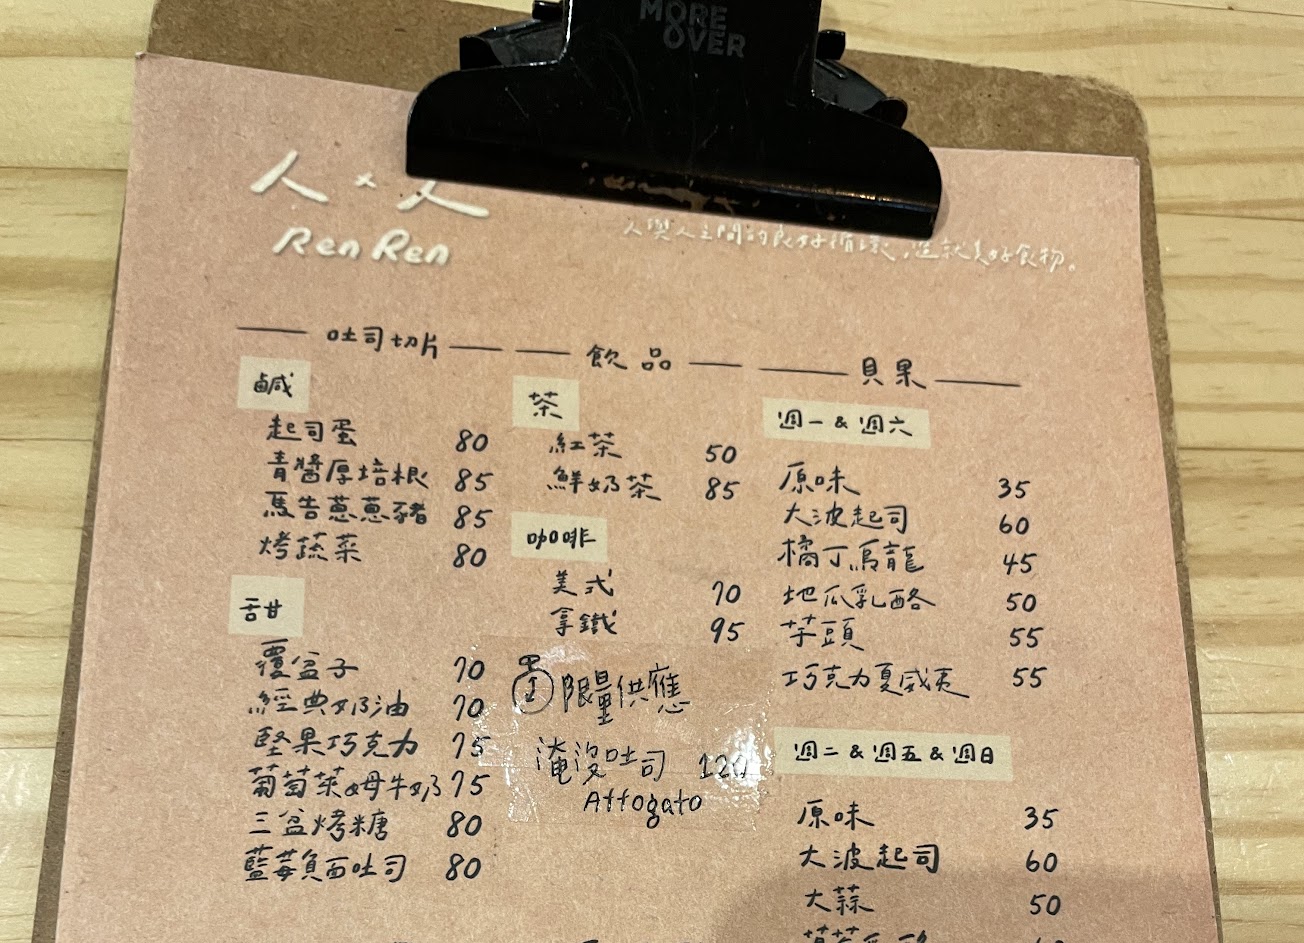 MORE
OVER
人 × 人
Ren Ren
人與人之間的良好循環,造就美好食物。
吐司切片
鹹
起司蛋 80
青醬厚培根 85
馬告蔥蔥豬 85
烤蔬菜 80
甜
覆盆子 70
經典奶油 70
堅果巧克力 75
葡萄萊姆牛奶 75
三盆烤糖 80
藍莓負面吐司 80
飲品
茶
紅茶 50
鮮奶茶 85
咖啡
美式 70
拿鐵 95
限量供應
淹沒吐司 120
Affogato
貝果
週一 & 週六
原味 35
大波起司 60
橘丁烏龍 45
地瓜乳酪 50
芋頭 55
巧克力夏威夷 55
週二 & 週五 & 週日
原味 35
大波起司 60
大蒜 50